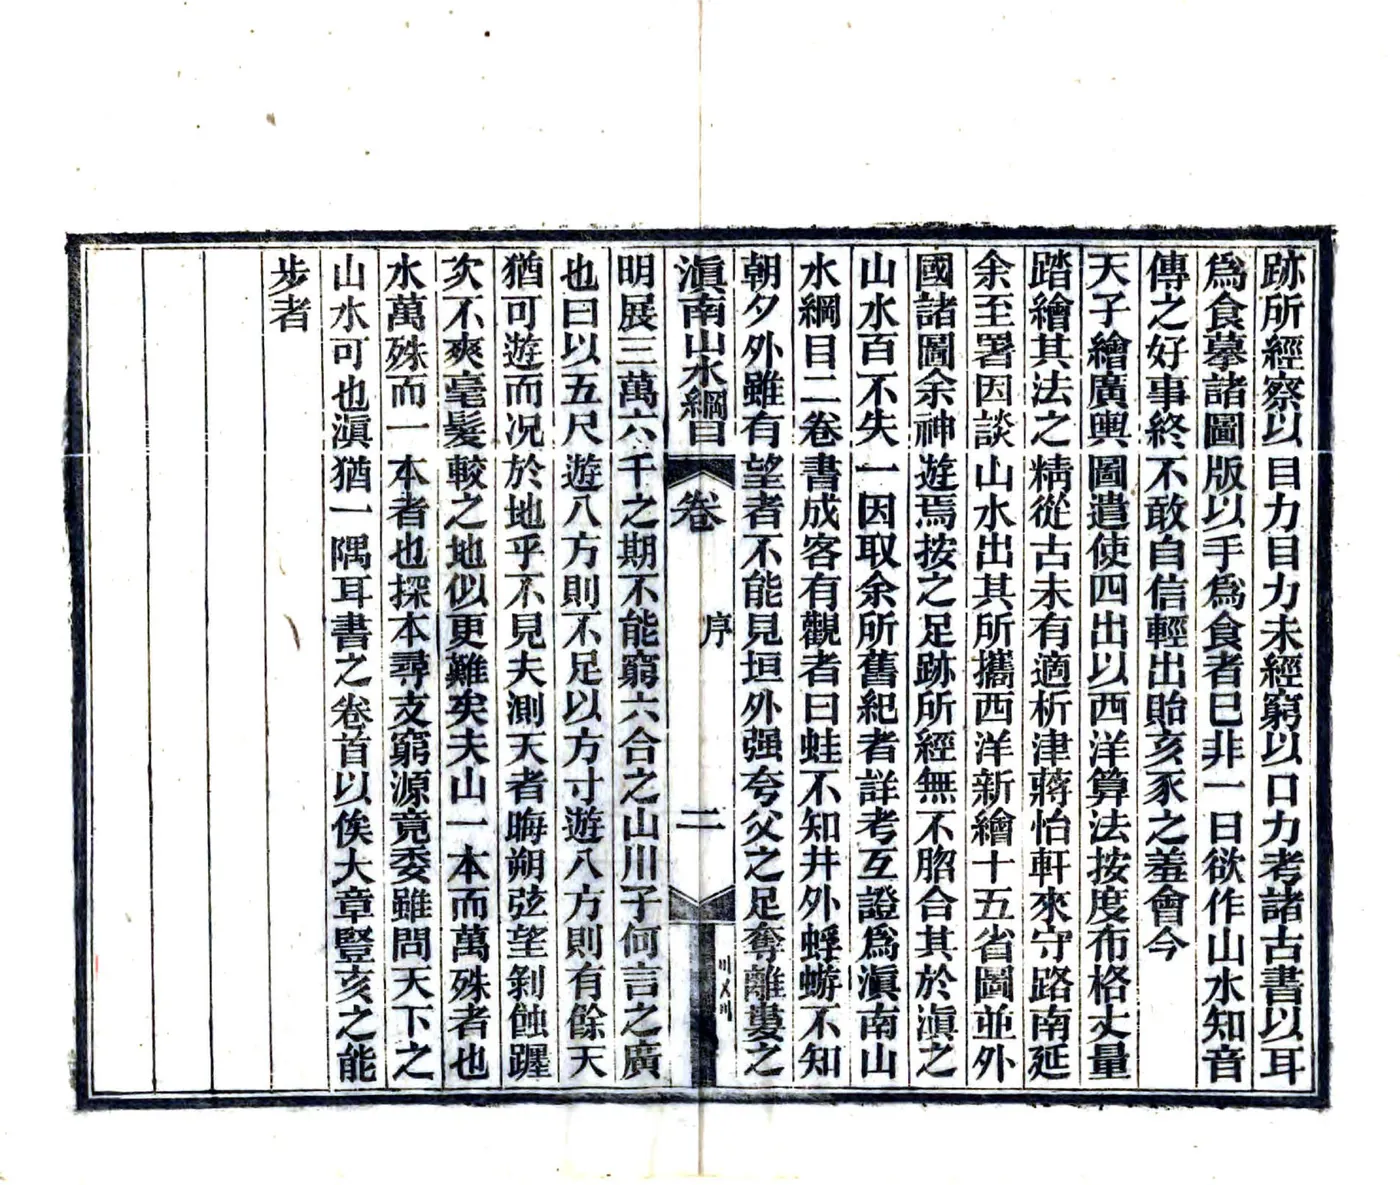 跡所經察以目力目力未經窮以口力考諸古書以耳
爲食摹諸圖版以手爲食者已非一日欲作山水知音
傳之好事終不敢自信輕出貽亥豕之羞會今
天子繪廣輿圖遣使四出以西洋算法按度布格丈量
踏繪其法之精從古未有適析津蔣怡軒來守路南延
余至署因談山水出其所攜西洋新繪十五省圖並外
國諸圖余神遊焉按之足跡所經無不脗合其於滇之
山水百不失一因取余所舊紀者詳考互證爲滇南山
水綱目二卷書成客有觀者曰蛙不知井外蜉蝣不知
朝夕外雖有望者不能見垣外强夸父之足奪離婁之
滇南山水綱目
卷
序
二
明展三萬六千之期不能窮六合之山川子何言之廣
也曰以五尺遊八方則不足以方寸遊八方則有餘天
猶可遊而況於地乎不見夫測天者晦朔弦望剝蝕躔
次不爽毫髮較之地似更難矣夫山一本而萬殊者也
水萬殊而一本者也探本尋支窮源竟委雖問天下之
山水可也滇猶一隅耳書之卷首以俟大章豎亥之能
步者